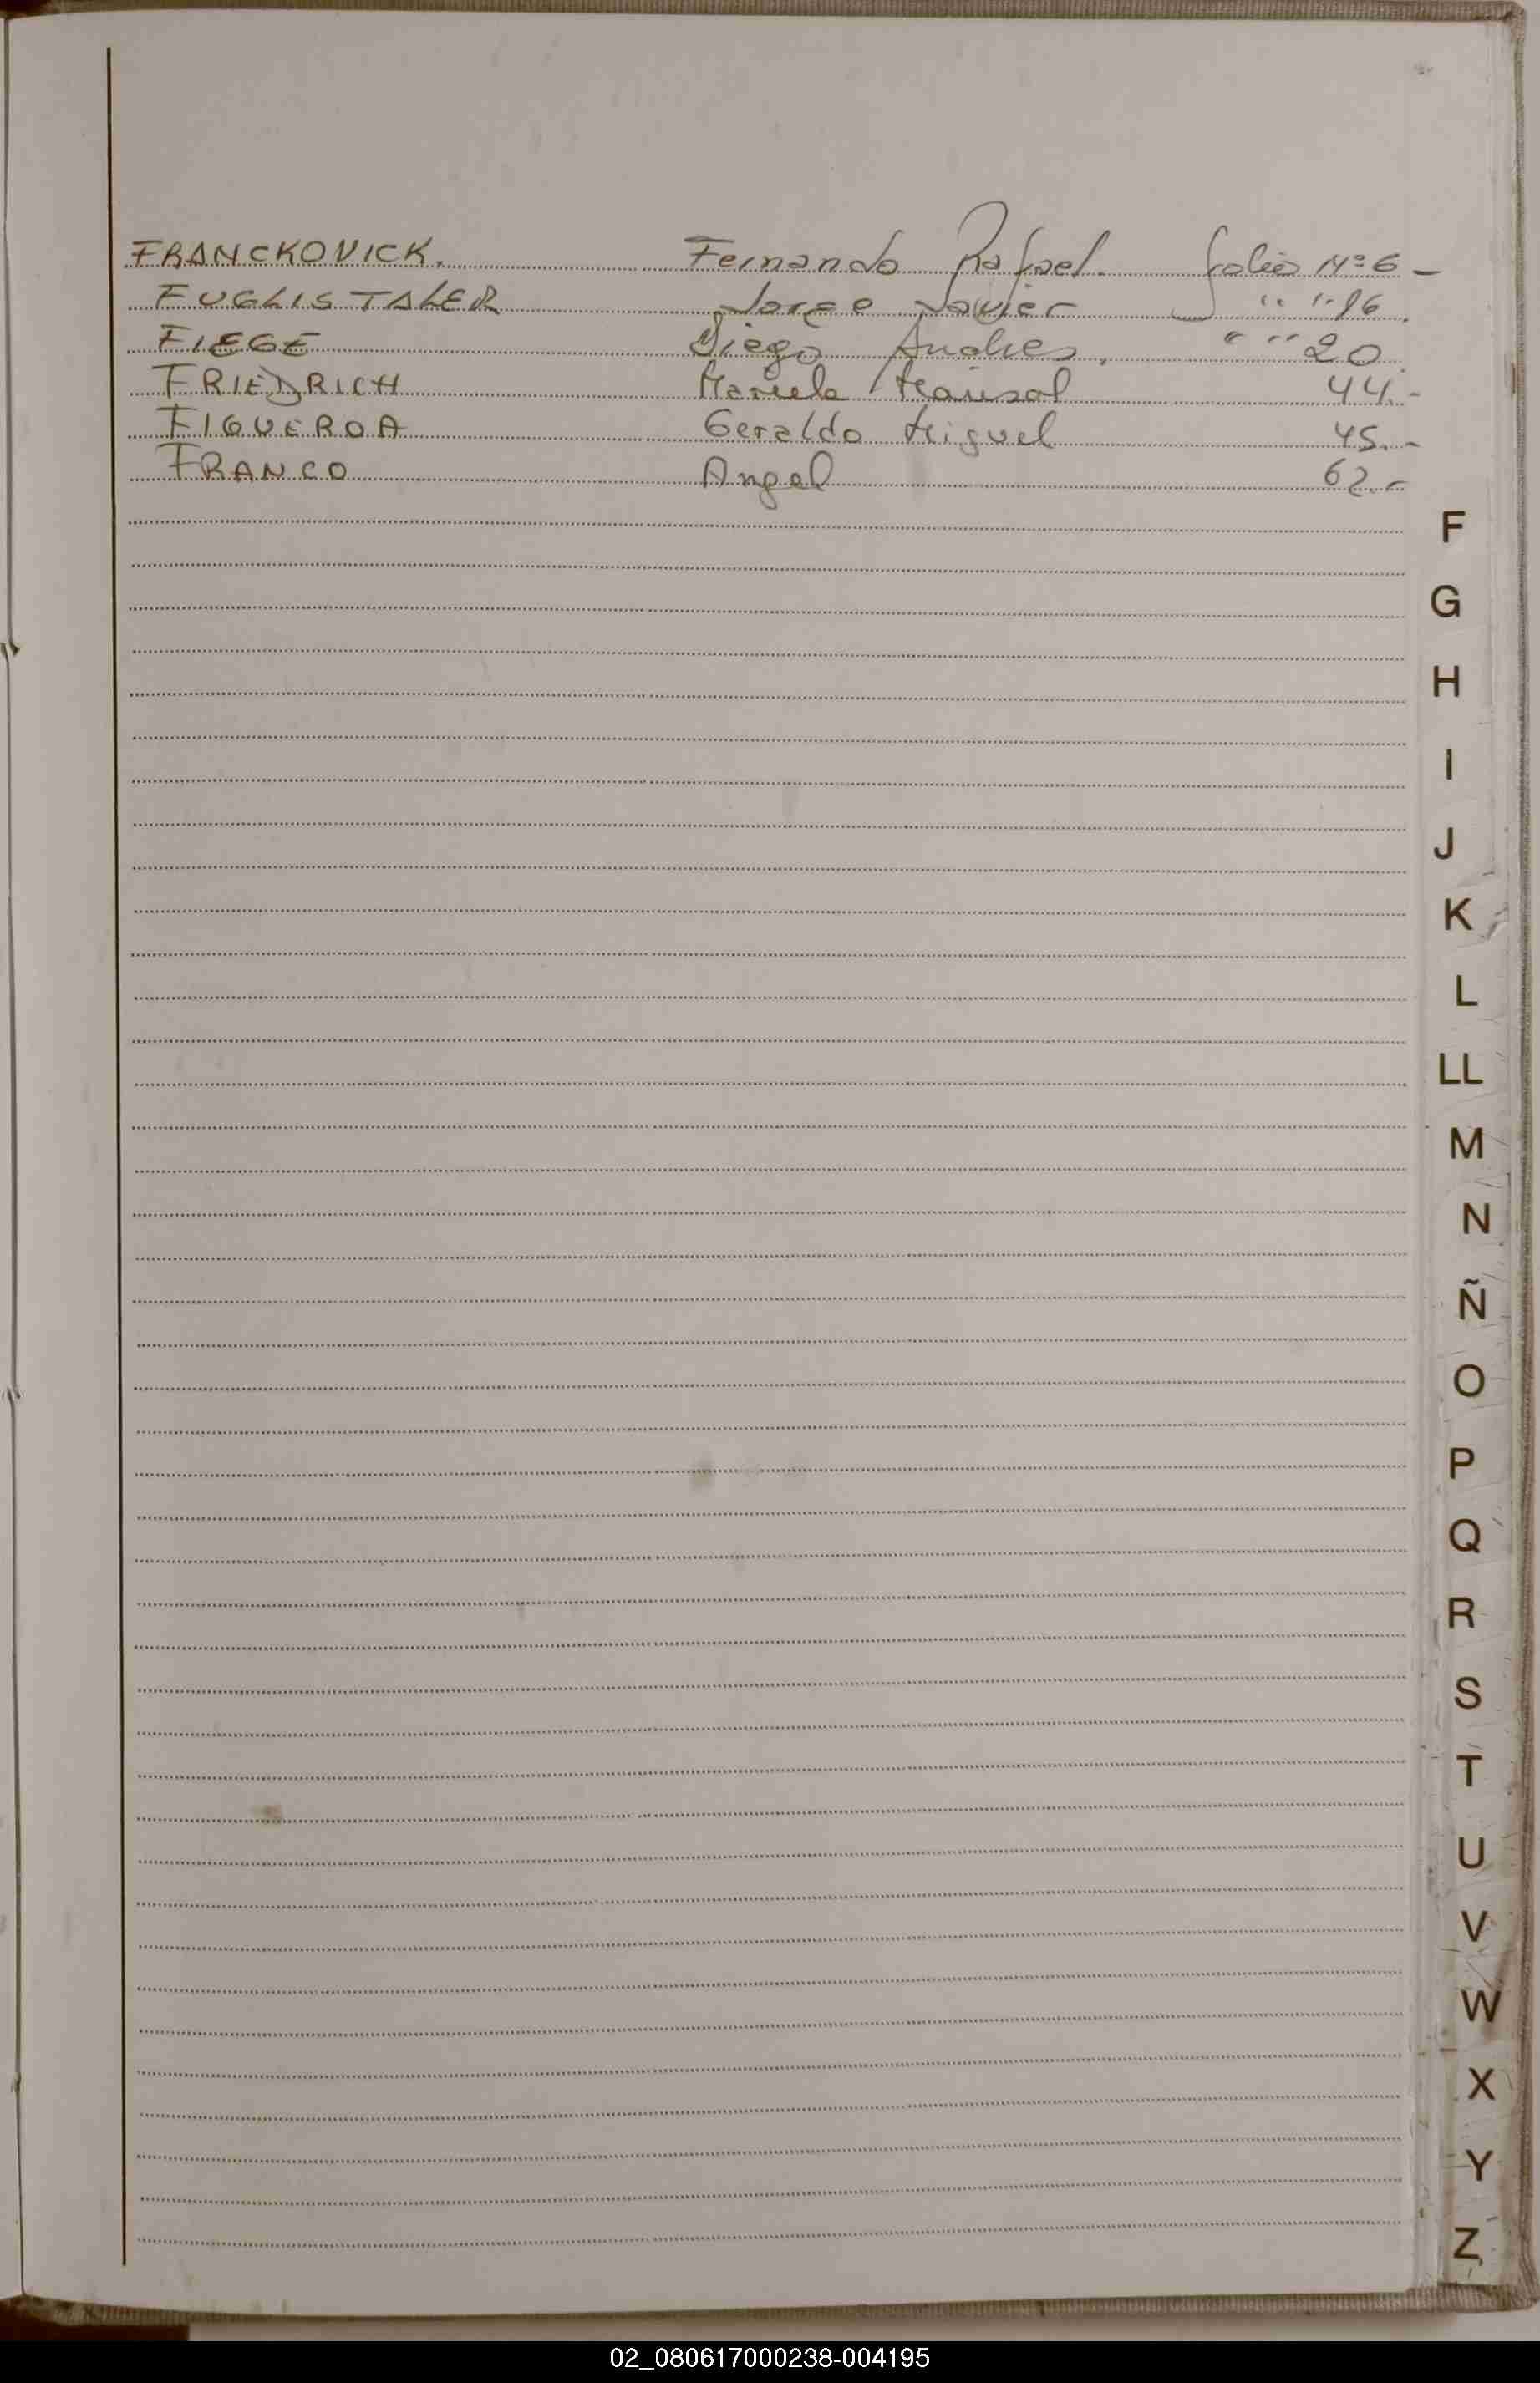 FRANCKOVICK. Fernando Rafael. folio Nº 6 -
FUGLISTALER Jorge Javier " " 16.
FIEGE Diego Andres. " " 20
FRIEDRICH Mariela Marisol 44.-
FIGUEROA Geraldo Miguel 45.-
FRANCO Angel 62.-
F
G
H
I
J
K
L
LL
M
N
Ñ
O
P
Q
R
S
T
U
V
W
X
Y
Z
02_080617000238-004195